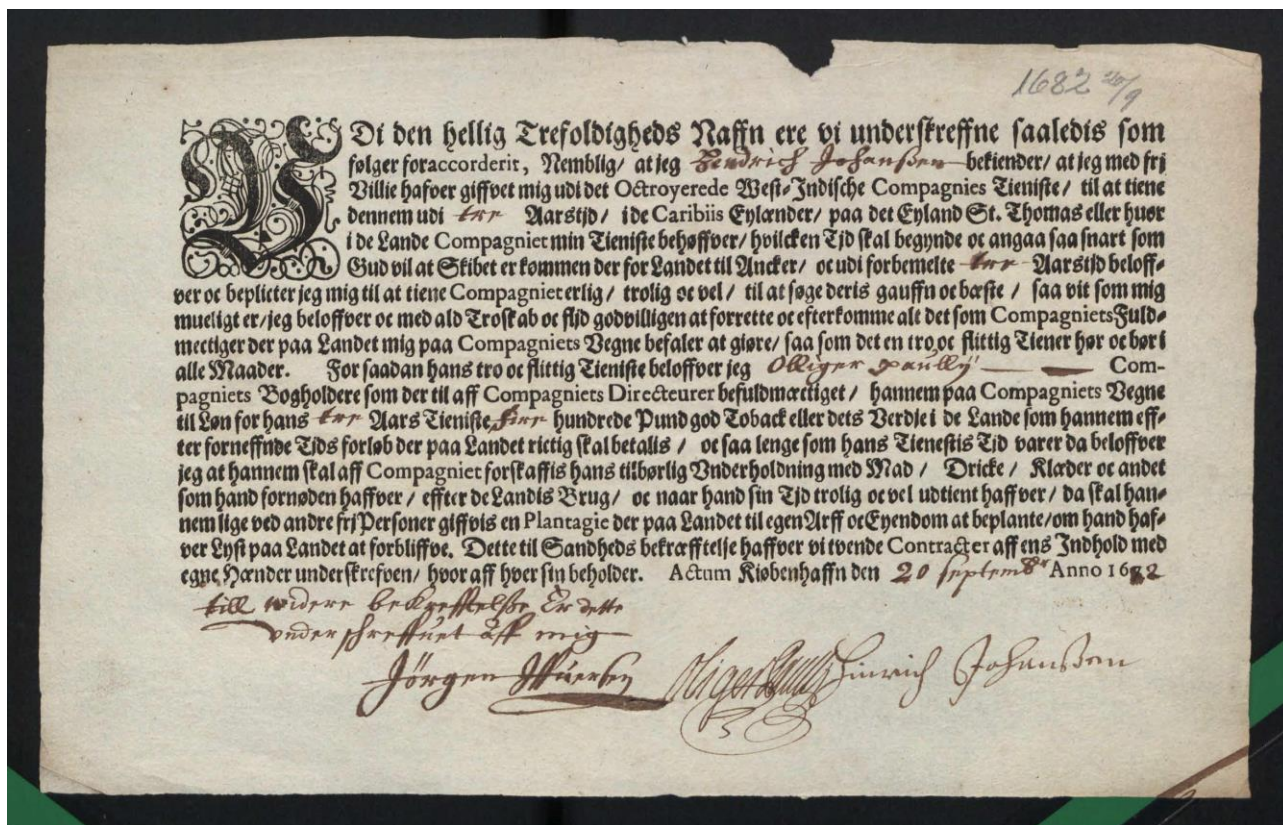 1682 20/9
UDi den hellig Trefoldigheds Naffn ere vi underskreffne saaledis som
følger foraccorderit, Nemblig/ at jeg Hendrich Johanßen bekiender/ at jeg med frj
Villie hafver giffvet mig udi det Octroyerede West-Indische Compagnies Tieniste/ til at tiene
dennem udi tre Aarstjd/ i de Caribiis Eylænder/ paa det Eyland St. Thomas eller huor
i de Lande Compagniet min Tieniste behøffver/ hvilcken Tjd skal begynde oc angaa saa snart som
Gud vil at Skibet er kommen der for Landet til Ancker/ oc udi forbemelte tre Aarstjd beloff-
ver oc beplicter jeg mig til at tiene Compagniet erlig/ trolig oc vel/ til at søge deris gauffn oc bæste / saa vit som mig
mueligt er/ jeg beloffver oc med ald Troskab oc fljd godvilligen at forrette oc efterkomme alt det som Compagniets Fuld-
mectiger der paa Landet mig paa Compagniets Vegne befaler at giøre/ saa som det en tro oc flittig Tiener hør oc bør i
alle Maader. For saadan hans tro oc flittig Tieniste beloffver jeg Olliger paullÿ Com-
pagniets Bogholdere som der til aff Compagniets Directeurer befuldmæctiget/ hannem paa Compagniets Vegne
til Løn for hans tre Aars Tieniste, fire hundrede Pund god Toback eller dets Verdje i de Lande som hannem eff-
ter forneffnde Tids forløb der paa Landet rictig skal betalis / oc saa lenge som hans Tienestis Tjd varer da beloffver
jeg at hannem skal aff Compagniet forskaffis hans tilbørlig Vnderholdning med Mad / Dricke / Klæder oc andet
som hand fornøden haffver / effter de Landis Brug/ oc naar hand sin Tjd trolig oc vel udtient haffver / da skal han-
nem lige ved andre frj Personer giffvis en Plantagie der paa Landet til egen Arff oc Eyendom at beplante/ om hand haf-
ver Lyst paa Landet at forbliffve. Dette til Sandheds bekræfftelse haffver vi tvende Contracter aff ens Indhold med
egne Hænder underskrefven/ hvor aff hver sin beholder. Actum Kiøbenhaffn den 20 septembr Anno 1682
till widere bekrefftelße Er dette
vnderschreffuet aff mig
Jörgen Oliger Paulli Hinrich Johanßen